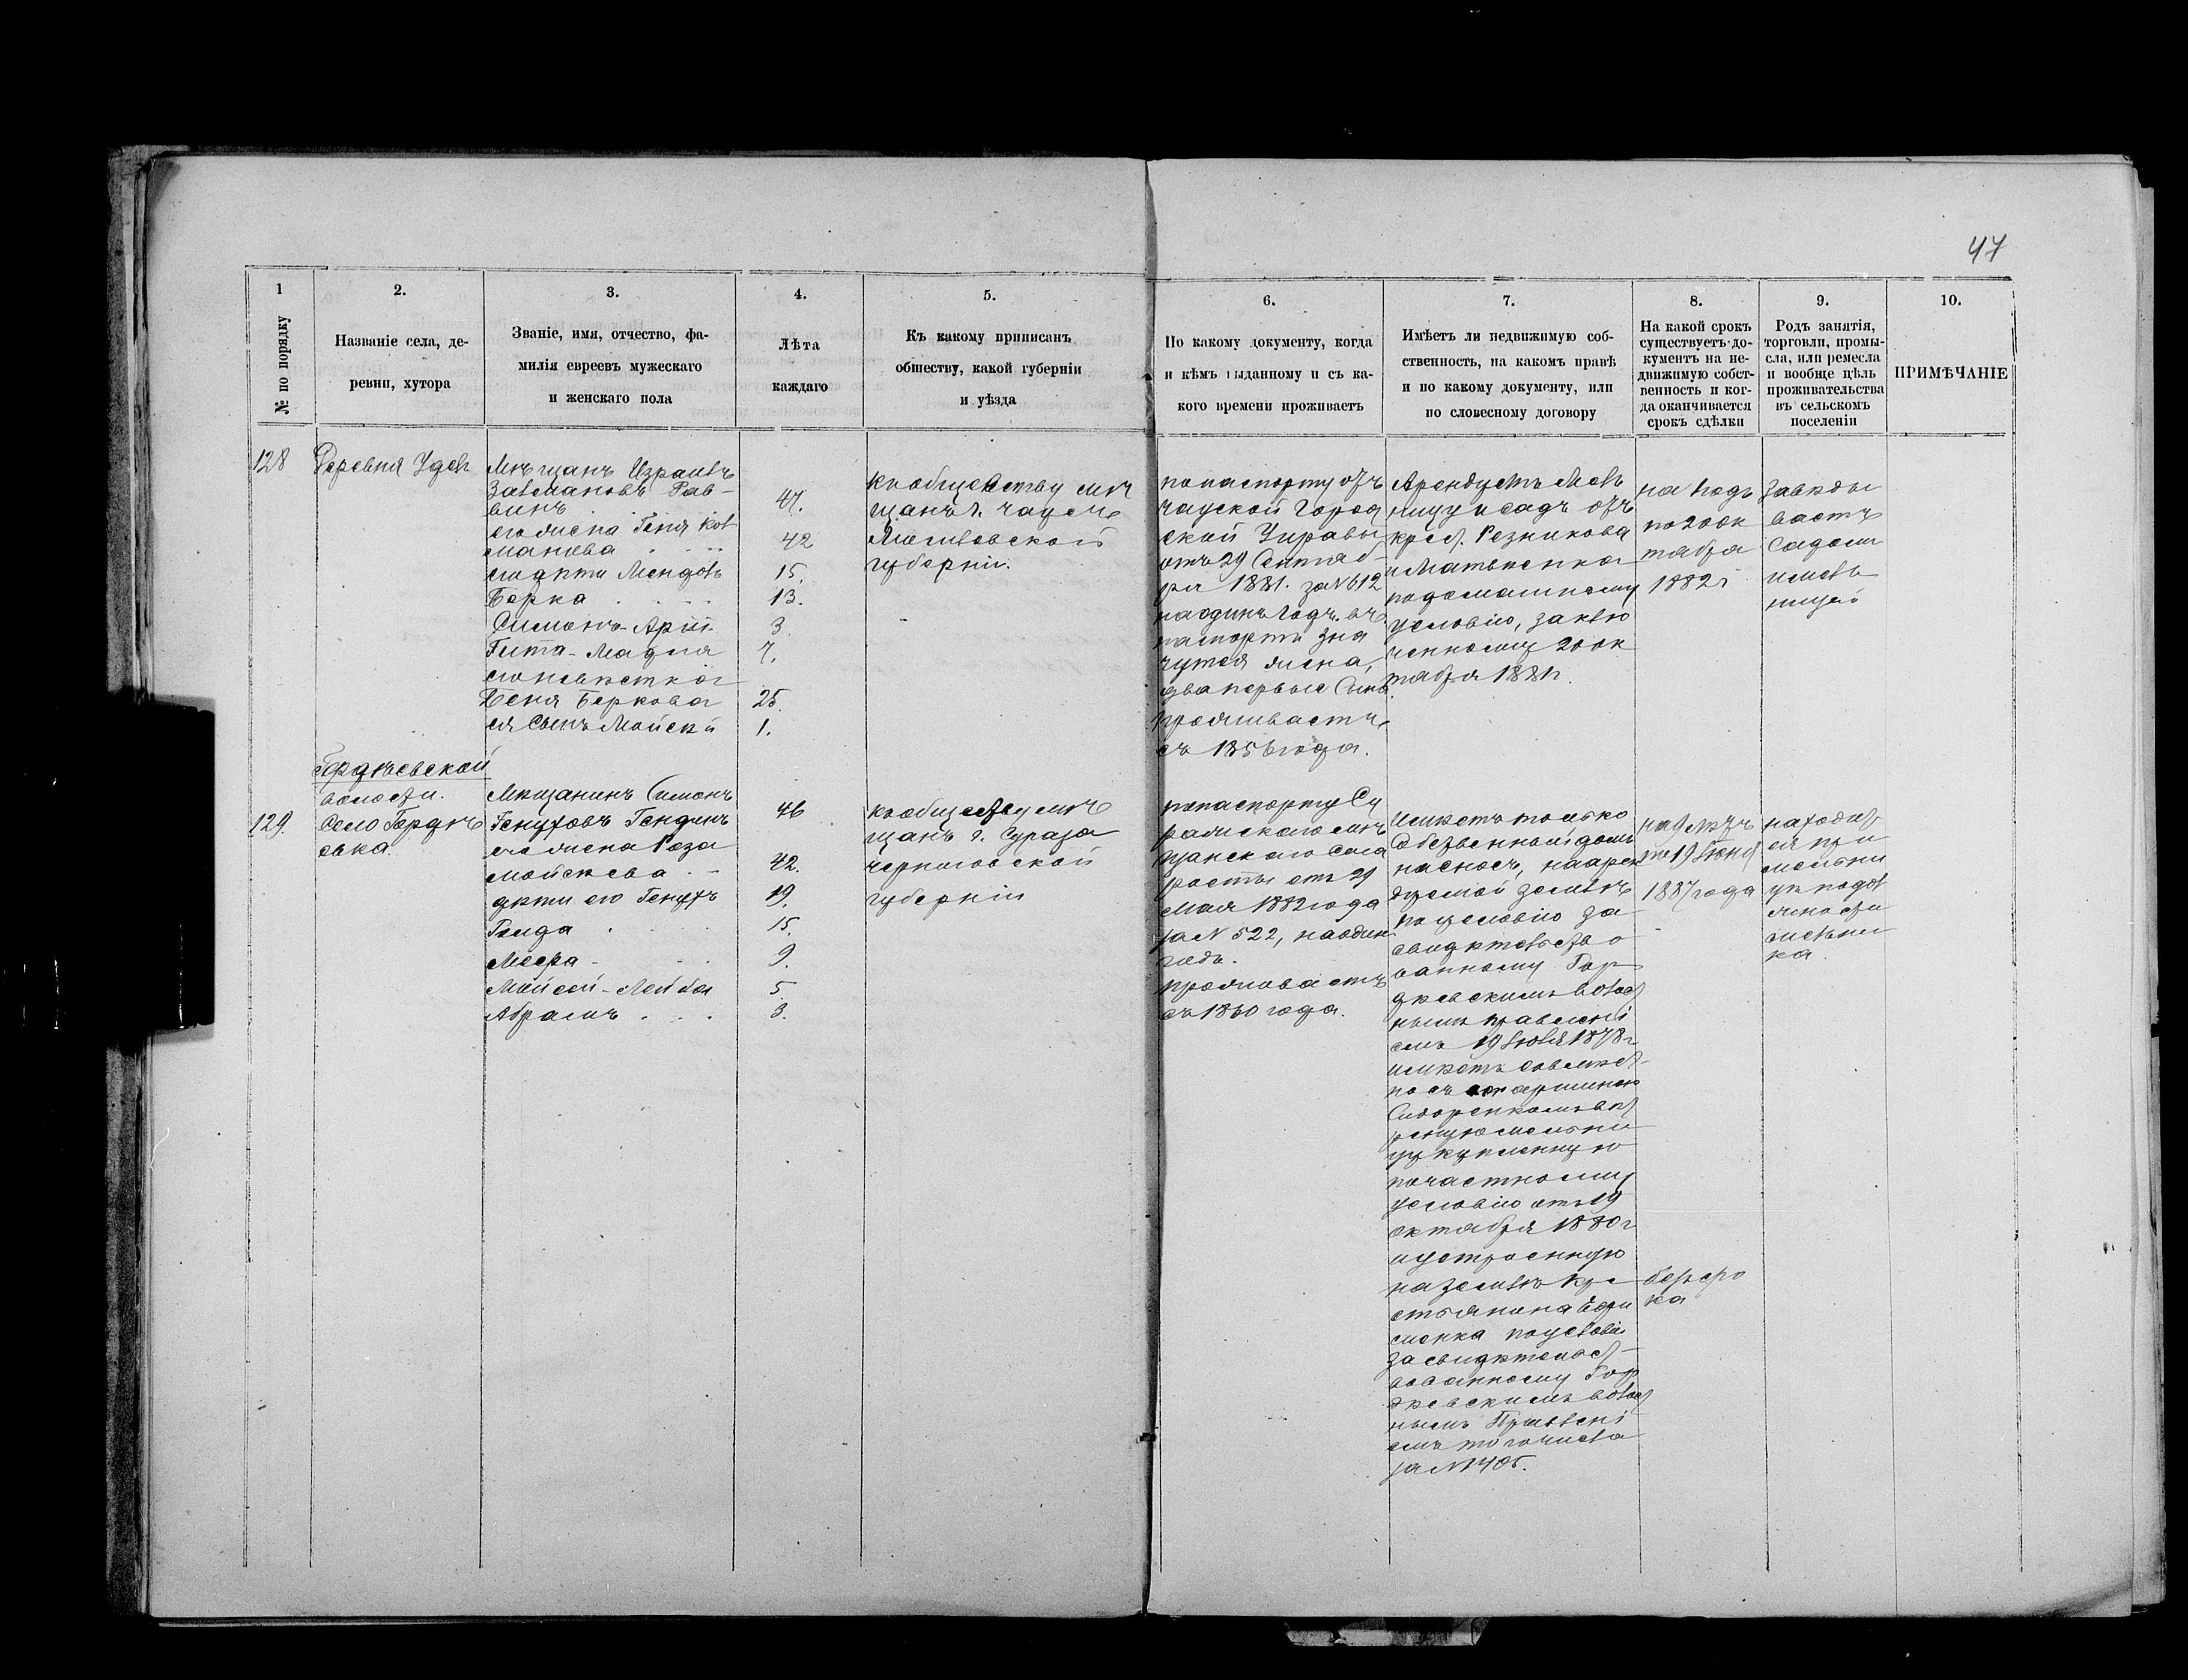 47
1
№ по порядку
2.
Названіе села, де-
ревни, хутора
3.
Званіе, имя, отчество, фа-
милія евреевъ мужескаго
и женскаго пола
4.
Лѣта
каждаго
5.
Къ какому приписанъ
обществу, какой губерніи
и уѣзда
6.
По какому документу, когда
и кѣмъ выданному и съ ка-
кого времени проживаетъ
7.
Имѣетъ ли недвижимую соб-
ственность, на какомъ правѣ
и по какому документу, или
по словесному договору
8.
На какой срокъ
существуетъ до-
кументъ на не-
движимую собст-
венность и ког-
да оканчивается
срокъ сдѣлки
9.
Родъ занятія,
торговли, промы-
сла, или ремесла
и вообще цѣль
проживательства
въ сельскомъ
поселеніи
10.
ПРИМѢЧАНІЕ
128
Деревня
Мѣщанъ Израиль
Залмановъ Рав-
винъ
его жена Геня Кол
манова
его дѣти Мендель
Берка
Симонъ-Арій
Гита-Мадля
его невѣстка
Беня Беркова
ея сынъ Мойсѣй
47.
42
15.
13.
3.
7.
25.
1.
къ обществу мѣ
щанъ г. Чаусъ
Могилевской
губерніи.
по паспорту отъ
чауской Город
ской Управы
отъ 29 Сентяб-
ря 1881. за № 612
на одинъ годъ. въ
паспортѣ зна
чутся жена,
два первые сына
проживаетъ
съ 1856 года.
Арендуетъ мель
ницу и садъ отъ
крест. Резникова
и Матвѣенка
по домашнему
условію, заклю
ченному 20 ок
тября 1881 г.
на годъ
по 20 ок
тября
1882 г
завѣды
ваетъ
садомъ
и мель
ницей
Гордѣевской
волости.
129.
Село Гордѣ
евка.
Мѣщанинъ Симонъ
Генуховъ Гендинъ
его жена Роза
Мойсѣева
дѣти его Генухъ
Голда
Месра
Мойсей-Лейба
Абрамъ
46
42.
19.
15.
9.
5.
3.
къ обществу мѣ
щанъ г. Суража
черниговской
губерніи
по паспорту Су
ражскаго мѣ
щанскаго Ста
росты отъ 29
Мая 1882 года
за № 522, на один
годъ.
проживаетъ
съ 1860 года.
Имѣетъ только
собственный домъ
на сносъ, на арен
дуемой землѣ
по условію за
свидѣтельство
ванному Гор
дѣевскимъ волост
нымъ правлені
емъ 19 Іюля 1878 г
имѣетъ совмѣст-
но съ старшиною
Сидоренкомъ вѣт
реную мельни
цу купленную
по частному
условію отъ 19
октября 1880 г
и устроенную
на землѣ кре
стьянина Ефи
менка по условію
засвидѣтельст-
вованному Гор
дѣевскимъ волост
нымъ Правлені
емъ того числа
за № 405.
на 9 лѣтъ
по 19 Іюня
1887 года
безсро
ка
находит
ся при
мельни
цѣ по дол
жности
мельни
ка.